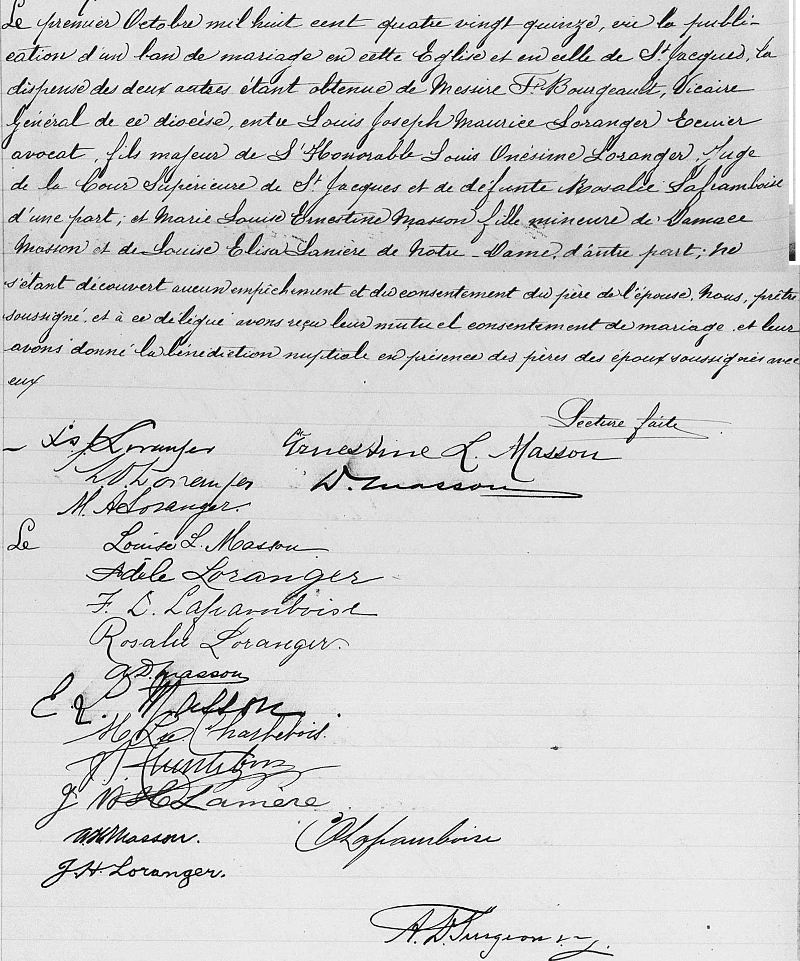 Le premier Octobre mil huit cent quatre vingt quinze, vu la publi-
cation d'un ban de mariage en cette Eglise et en celle de St Jacques, la
dispense des deux autres étant obtenue de Messire F. Bourgeault, Vicaire
Général de ce diocèse, entre Louis Joseph Maurice Loranger Ecuier
avocat, fils majeur de L'Honorable Louis Onésime Loranger, Juge
de la Cour Supérieure de St Jacques et de défunte Rosalie Laframboise
d'une part; et Marie Louise Ernestine Masson fille mineure de Damace
Masson et de Louise Elisa Lanière de Notre-Dame, d'autre part; ne
s'étant découvert aucun empêchement et du consentement du père de l'épouse, Nous, prêtre
soussigné, et à ce délégué avons reçu leur mutuel consentement de mariage et leur
avons donné la bénédiction nuptiale en présence des pères des époux soussignés avec
eux
Lecture faite
Ls J Loranger Ernestine L. Masson
L. O. Loranger D. Masson
M. A Loranger.
Le Louise L. Masson
Adèle Loranger
F. D. Laframboise
Rosalie Loranger.
A D. Masson
E. L. Masson
M. Charlebois.
J. Lanière
Masson. Laframboise
J. H. Loranger.
A. D. Turgeon